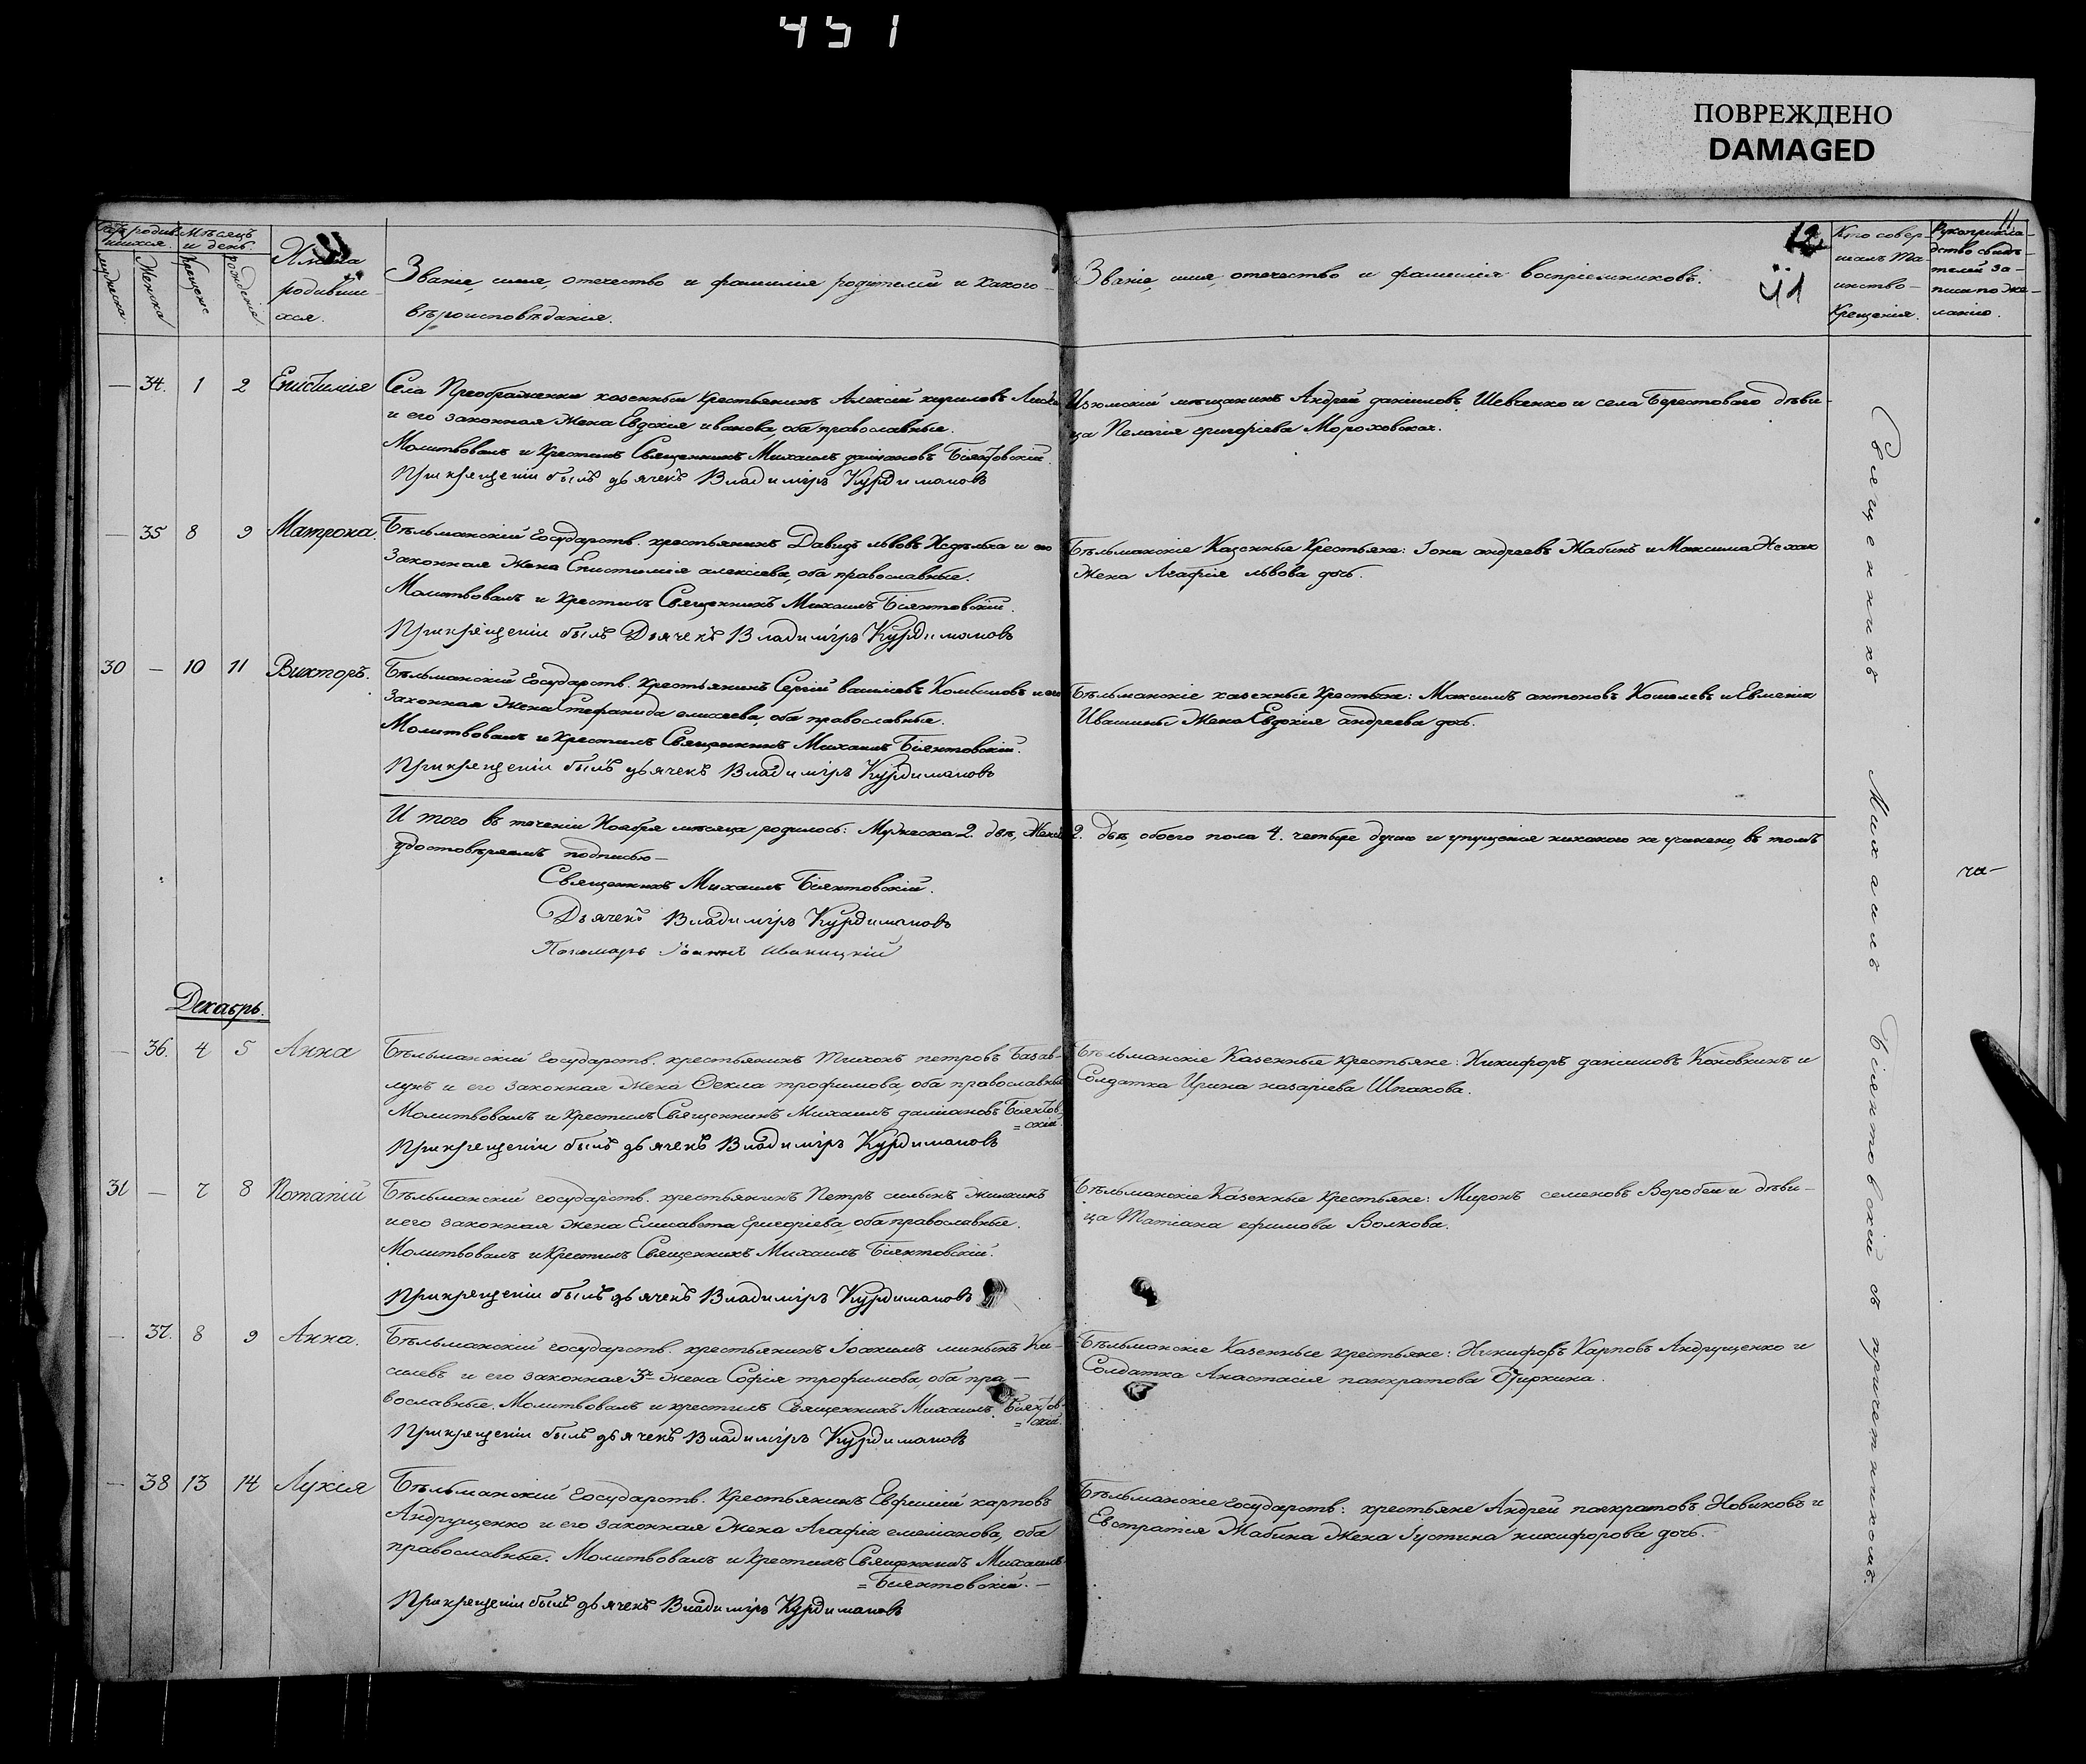 451
ПОВРЕЖДЕНО
DAMAGED
11
Имена родившихся.
Мѣсяцъ и день.
Званіе, имя, отечество и фамилія родителей и какого
вѣроисповѣданія.
Званіе, имя, отечество и фамилія воспріемниковъ.
Кто совершалъ таинство Крещенія.
— 34. 1 2 Епистимія
Села Преображенки казенный Крестьянинъ Алексій кириловъ
и его законная Жена Евдокія иванова, оба православные.
Молитвовалъ и Крестилъ Священникъ Михаилъ даміановъ Біянтовскій.
При крещеніи былъ дьячекъ Владиміръ Курдимановъ
Изюмскій мѣщанинъ Андрей даніиловъ Шевченко и села Берестоваго дѣви-
ца Пелагія григоріева Мороховская.
— 35 8 9 Матрона.
Бѣльманскій Государств. крестьянинъ Давидъ львовъ Недѣлька и его
Законная Жена Епистимія алексіева, оба православные.
Молитвовалъ и Крестилъ Священникъ Михаилъ Біянтовскій.
При крещеніи былъ Дьячекъ Владиміръ Курдимановъ
Бѣльманскіе Казенные Крестьяне: Іона андреевъ Жабинъ и Максима
Жена Агафія львова дочь.
30 — 10 11 Викторъ.
Бѣльманскій Государств. Крестьянинъ Сергій василіевъ и его
Законная Жена Стефанида елисеева, оба православные.
Молитвовалъ и Крестилъ Священникъ Михаилъ Біянтовскій.
При крещеніи былъ дьячекъ Владиміръ Курдимановъ
Бѣльманскіе казенные Крестьяне: Максимъ антоновъ Кошелевъ и Евменія
Ивашины Жена Евдокія андреева дочь.
И того въ теченіи Ноября мѣсяца родилось: Мужеска 2. двѣ, Женска 2. двѣ, обоего пола 4. четыре души и упущенія никакого не учинено, въ томъ
удостовѣряемъ подписью—
Священникъ Михаилъ Біянтовскій.
Дьячекъ Владиміръ Курдимановъ
Пономарь Іоаннъ Иваницкій
Декабрь.
— 36. 4 5 Анна
Бѣльманскій Государств. крестьянинъ Тихонъ петровъ Базав-
лукъ и его законная Жена Ѳекла трофимова, оба православные
Молитвовалъ и Крестилъ Священникъ Михаилъ даміановъ Біянтов-
=скій.
При крещеніи былъ дьячекъ Владиміръ Курдимановъ
Бѣльманскіе Казенные крестьяне: Никифоръ даніиловъ Коновкинъ и
Солдатка Ирина назаріева Шпакова.
31 — 7 8 Потапій
Бѣльманскій государств. крестьянинъ Петръ силынъ
и его законная жена Елисавета Григоріева, оба православные.
Молитвовалъ и Крестилъ Священникъ Михаилъ Біянтовскій.
При крещеніи былъ дьячекъ Владиміръ Курдимановъ
Бѣльманскіе Казенные Крестьяне: Миронъ семеновъ Воробей и дѣви-
ца Татіана ефимова Волкова.
— 37. 8 9 Анна.
Бѣльманскій государств. крестьянинъ Іоакимъ минынъ Ки-
селевъ и его законная 3я жена Софія трофимова, оба пра-
вославные. Молитвовалъ и крестилъ Священникъ Михаилъ Біянтов-
=скій.
При крещеніи былъ дьячекъ Владиміръ Курдимановъ
Бѣльманскіе Казенные крестьяне: Никифоръ Карповъ Андрущенко и
Солдатка Анастасія панкратова
— 38 13 14 Лукія
Бѣльманскій Государств. Крестьянинъ Евфимій карповъ
Андрущенко и его Законная Жена Агафія емеліанова, оба
православные. Молитвовалъ и Крестилъ Священникъ Михаилъ
=Біянтовскій.—
При крещеніи былъ дьячекъ Владиміръ Курдимановъ
Бѣльманскіе государств: крестьяне Андрей панкратовъ Новиковъ и
Евстратія Жабина Жена Іустина никифорова дочь.
Священникъ Михаилъ Біянтовскій съ причетникомъ.